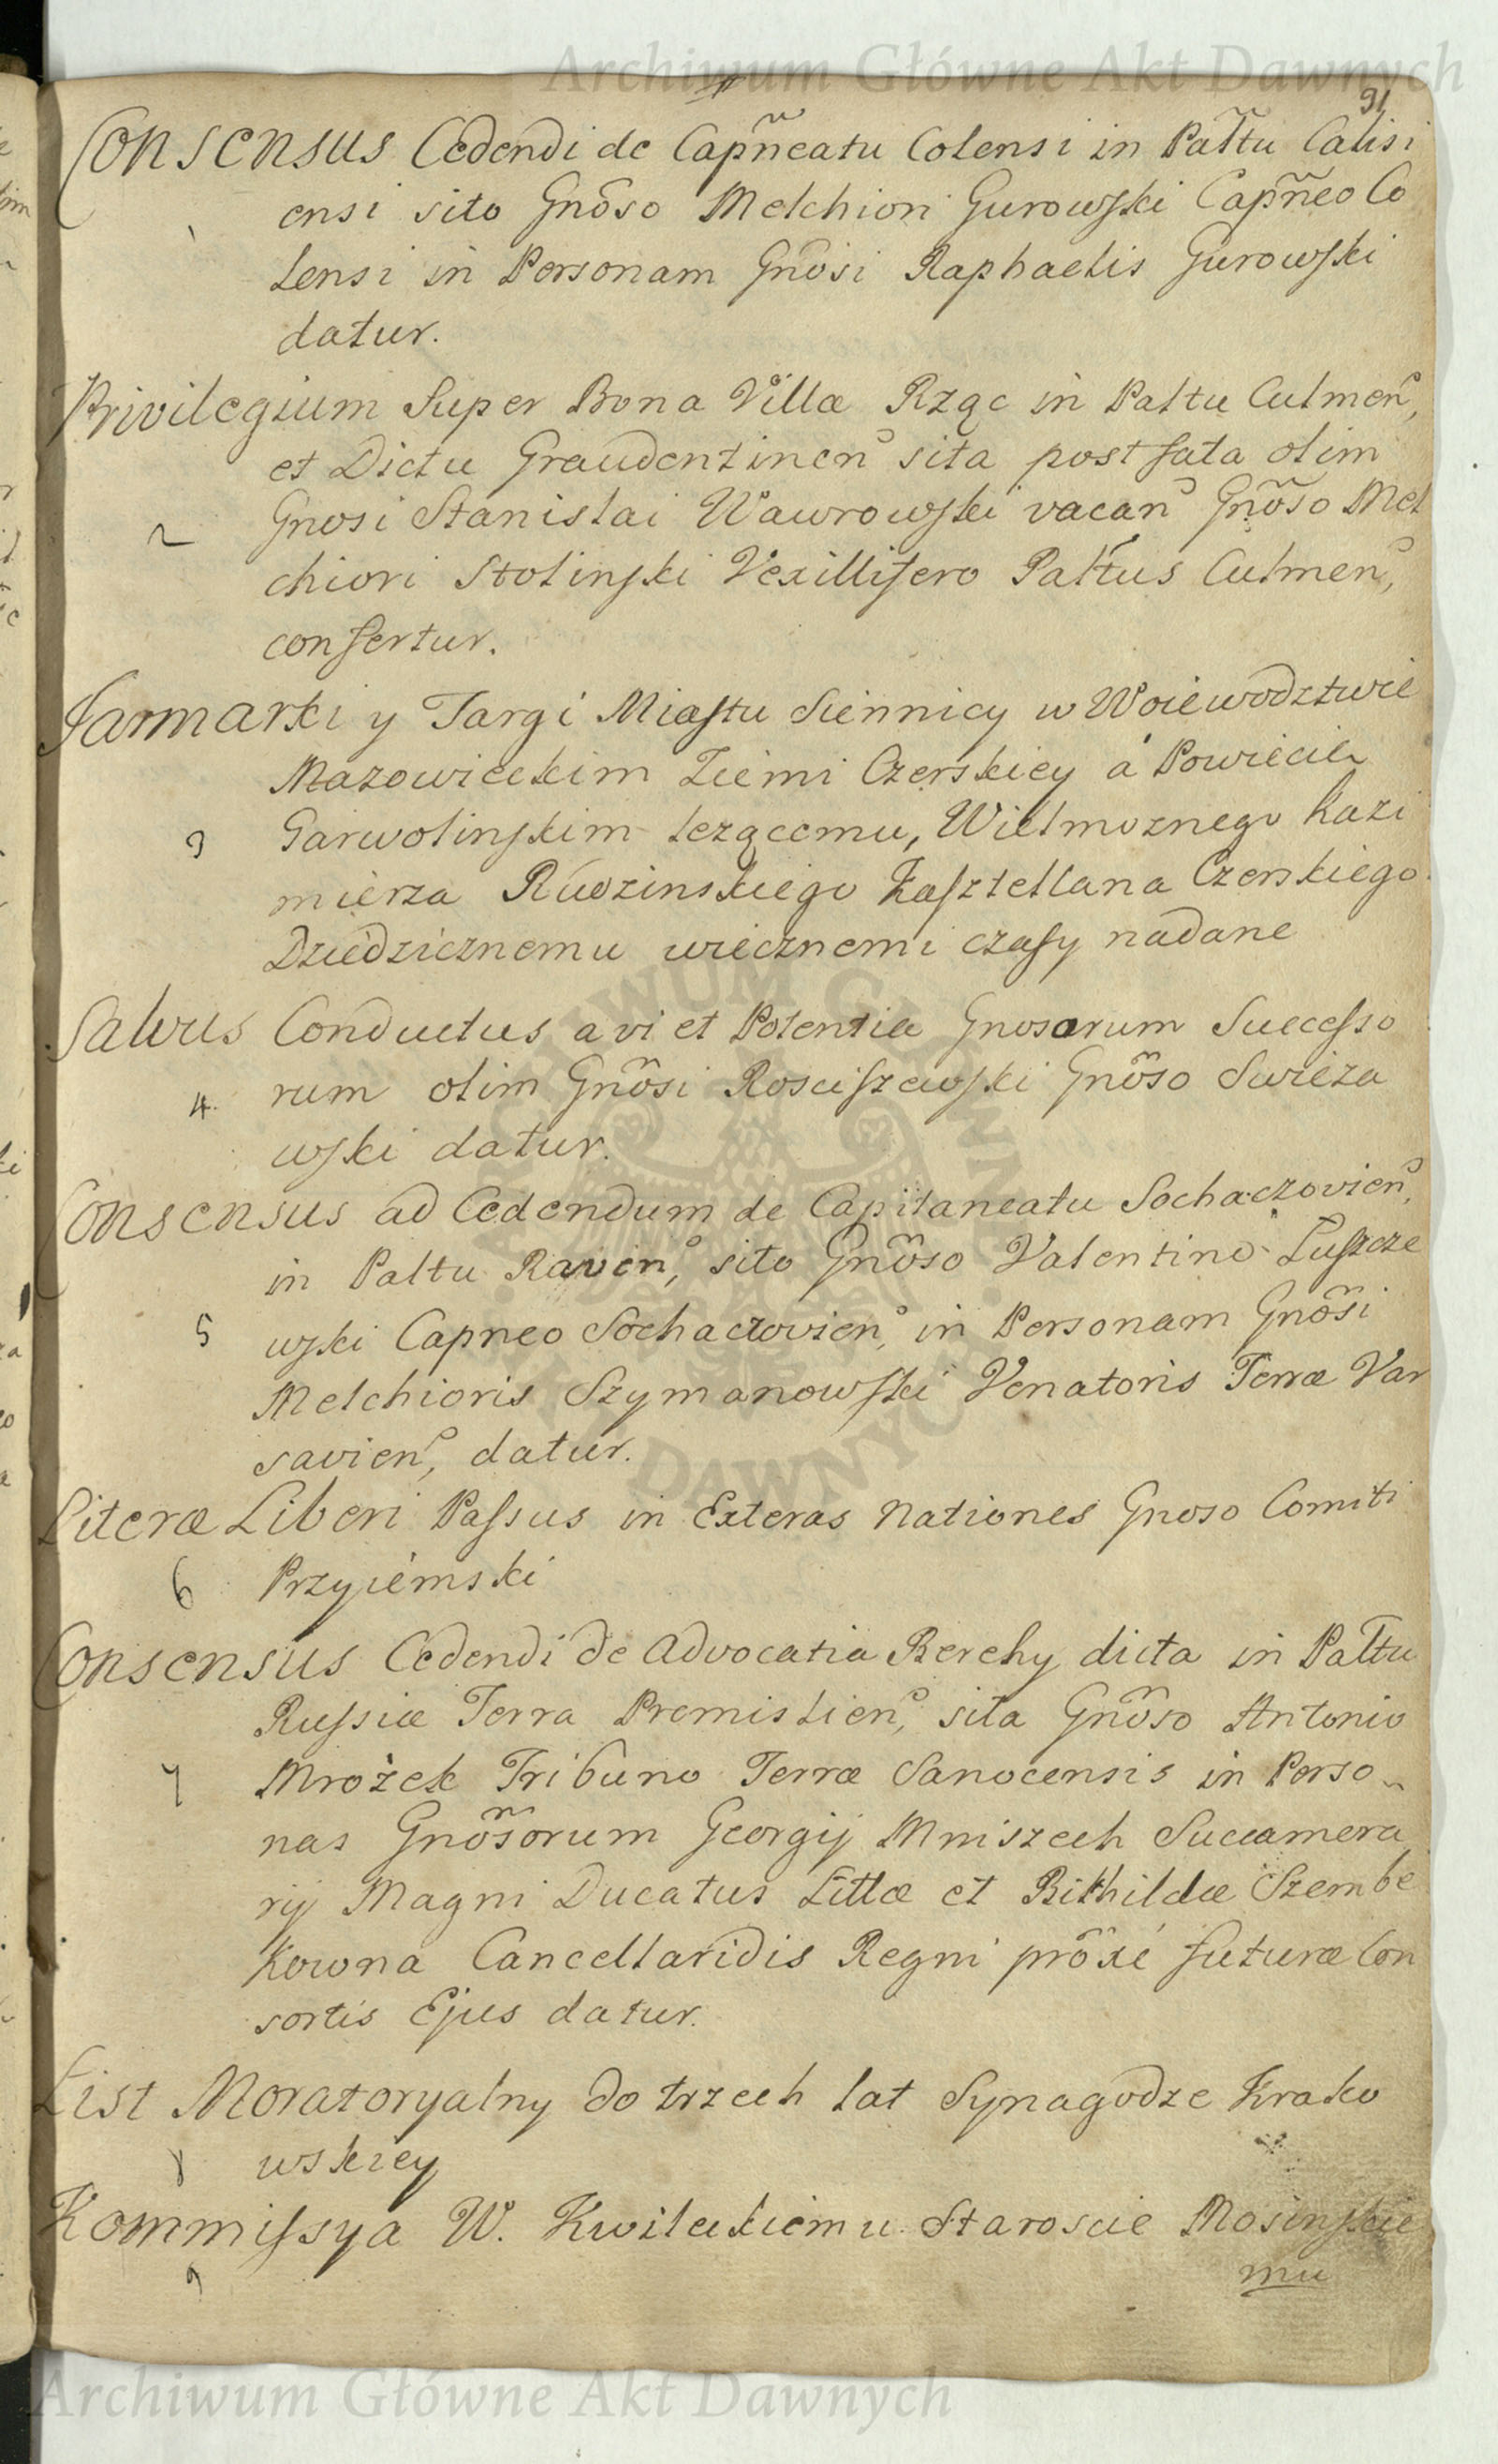 Archiwum Główne Akt Dawnych
91
Consensus Cedendi de Capñeatu Colensi in Palttu Calisi
ensi sito Gnõso Melchiori Gurowski Capñeo Co
1
lensi in Personam Gnõsi Raphaelis Gurowski
datur.
Privilegium Super Bona Villæ Rząc in Paltu Culmen,
et Dictu Graudentinen sita post fata olim
2 Gnosi Stanislai Wawrowski vacan Gnõso Mel
chiori Stolinski Vexillifero Palttus Culmen,
confertur.
Jarmarki y Targi Miastu Siennicy w Woiewodztwie
Mazowieckim Ziemi Czerskiey á Powiecie
3 Garwolinskim lezącemu, Wielmoznego Kazi
mierza Rudzinskiego Kasztellana Czerskiego
Dziedzicznemu wiecznemi czasy nadane
Salvus Conductus a vi et Potentia Gnosorum Successo
4. rum olim Gnõsi Rosciszewski Gnõso Swieza
wski datur.
Consensus ad Cedendum de Capitaneatu Sochaczovien,
in Paltu Raven, sito Gnõso Valentino Luszcze
5 wski Capneo Sochaczovien, in Personam Gnõsi
Melchioris Szymanowski Venatoris Terræ Var
savien, datur.
Literæ Liberi Passus in Exteras Nationes Gnoso Comiti
6 Przyiemski
Consensus Cedendi de Advocatia Berehy dicta in Palttu
Russiæ Terra Premislien, sita Gnõso Antonio
7 Mrożek Tribuno Terræ Sanocensis in Perso
nas Gnõsorum Georgij Mniszech Succamera
rij Magni Ducatus Littæ et Bithildæ Szembe
kowna Cancellaridis Regni prõxé futuræ Con
sortis Ejus datur.
List Moratoryalny do trzech lat Synagodze Krako
8 wskiey
Kommissya W. Kwileckiemu Staroscie Mosinskie
9
mu
Archiwum Główne Akt Dawnych